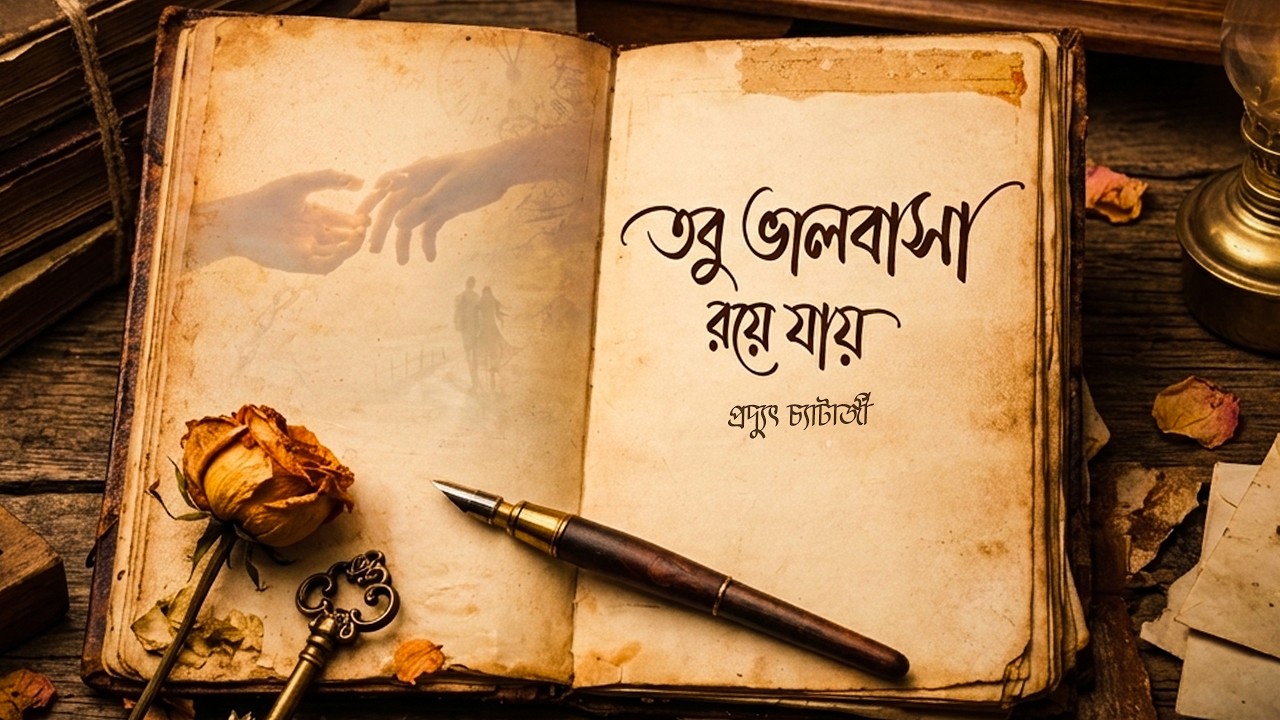 তবু ভালবাসা
রয়ে যায়
প্রদ্যুৎ চ্যাটার্জী